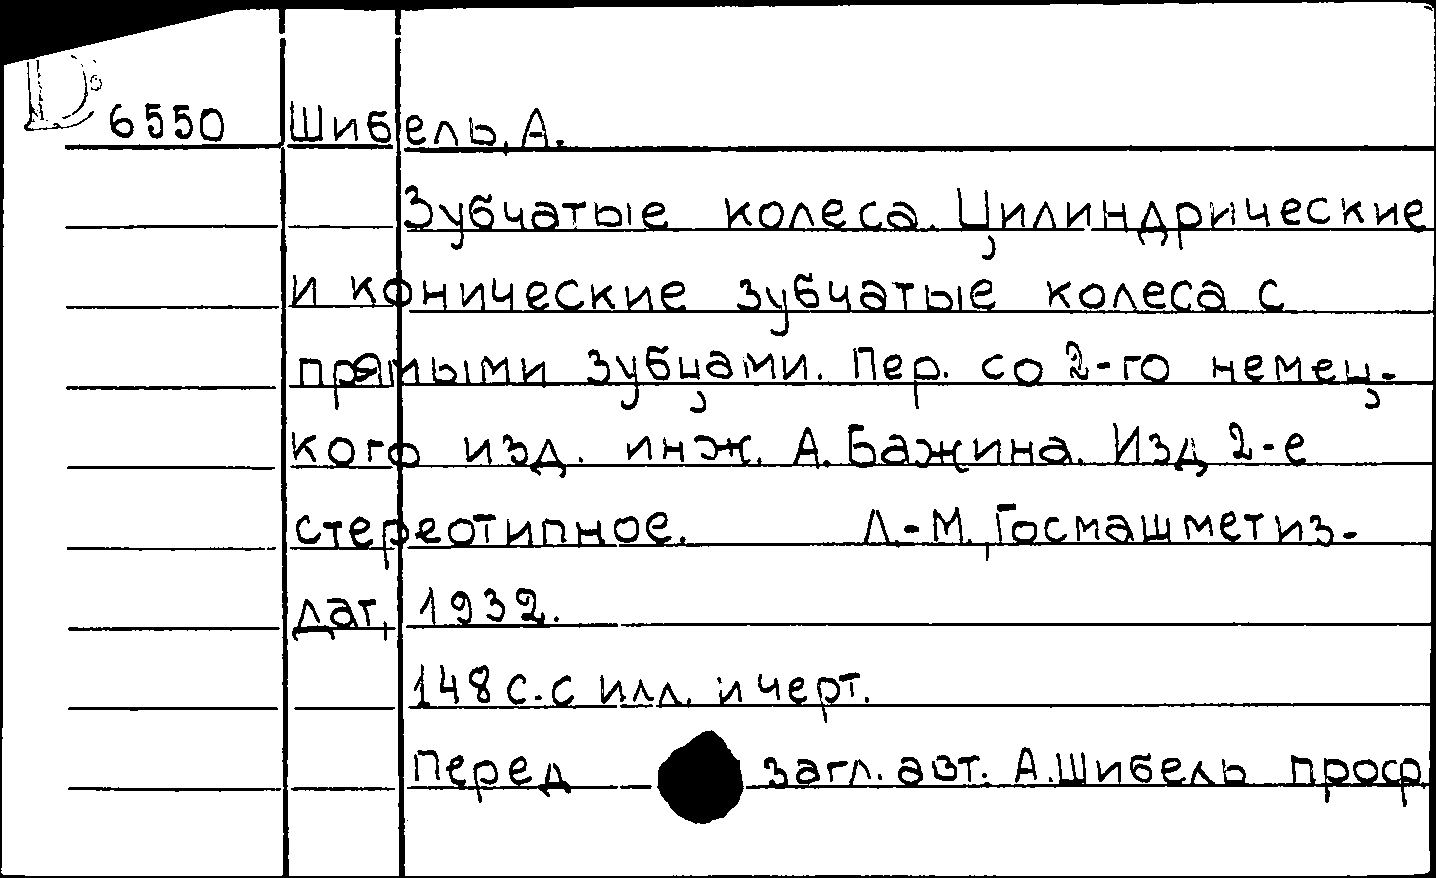 D.
6550 Шибель, А.
Зубчатые колеса. Цилиндрические
и конические зубчатые колеса с
прямыми зубцами. Пер. со 2-го немец-
кого изд. инж. А. Бажина. Изд 2-е
стереотипное. Л.-М., Госмашметиз-
дат, 1932.
148 с. с илл. и черт.
Перед загл. авт.: А. Шибель проф